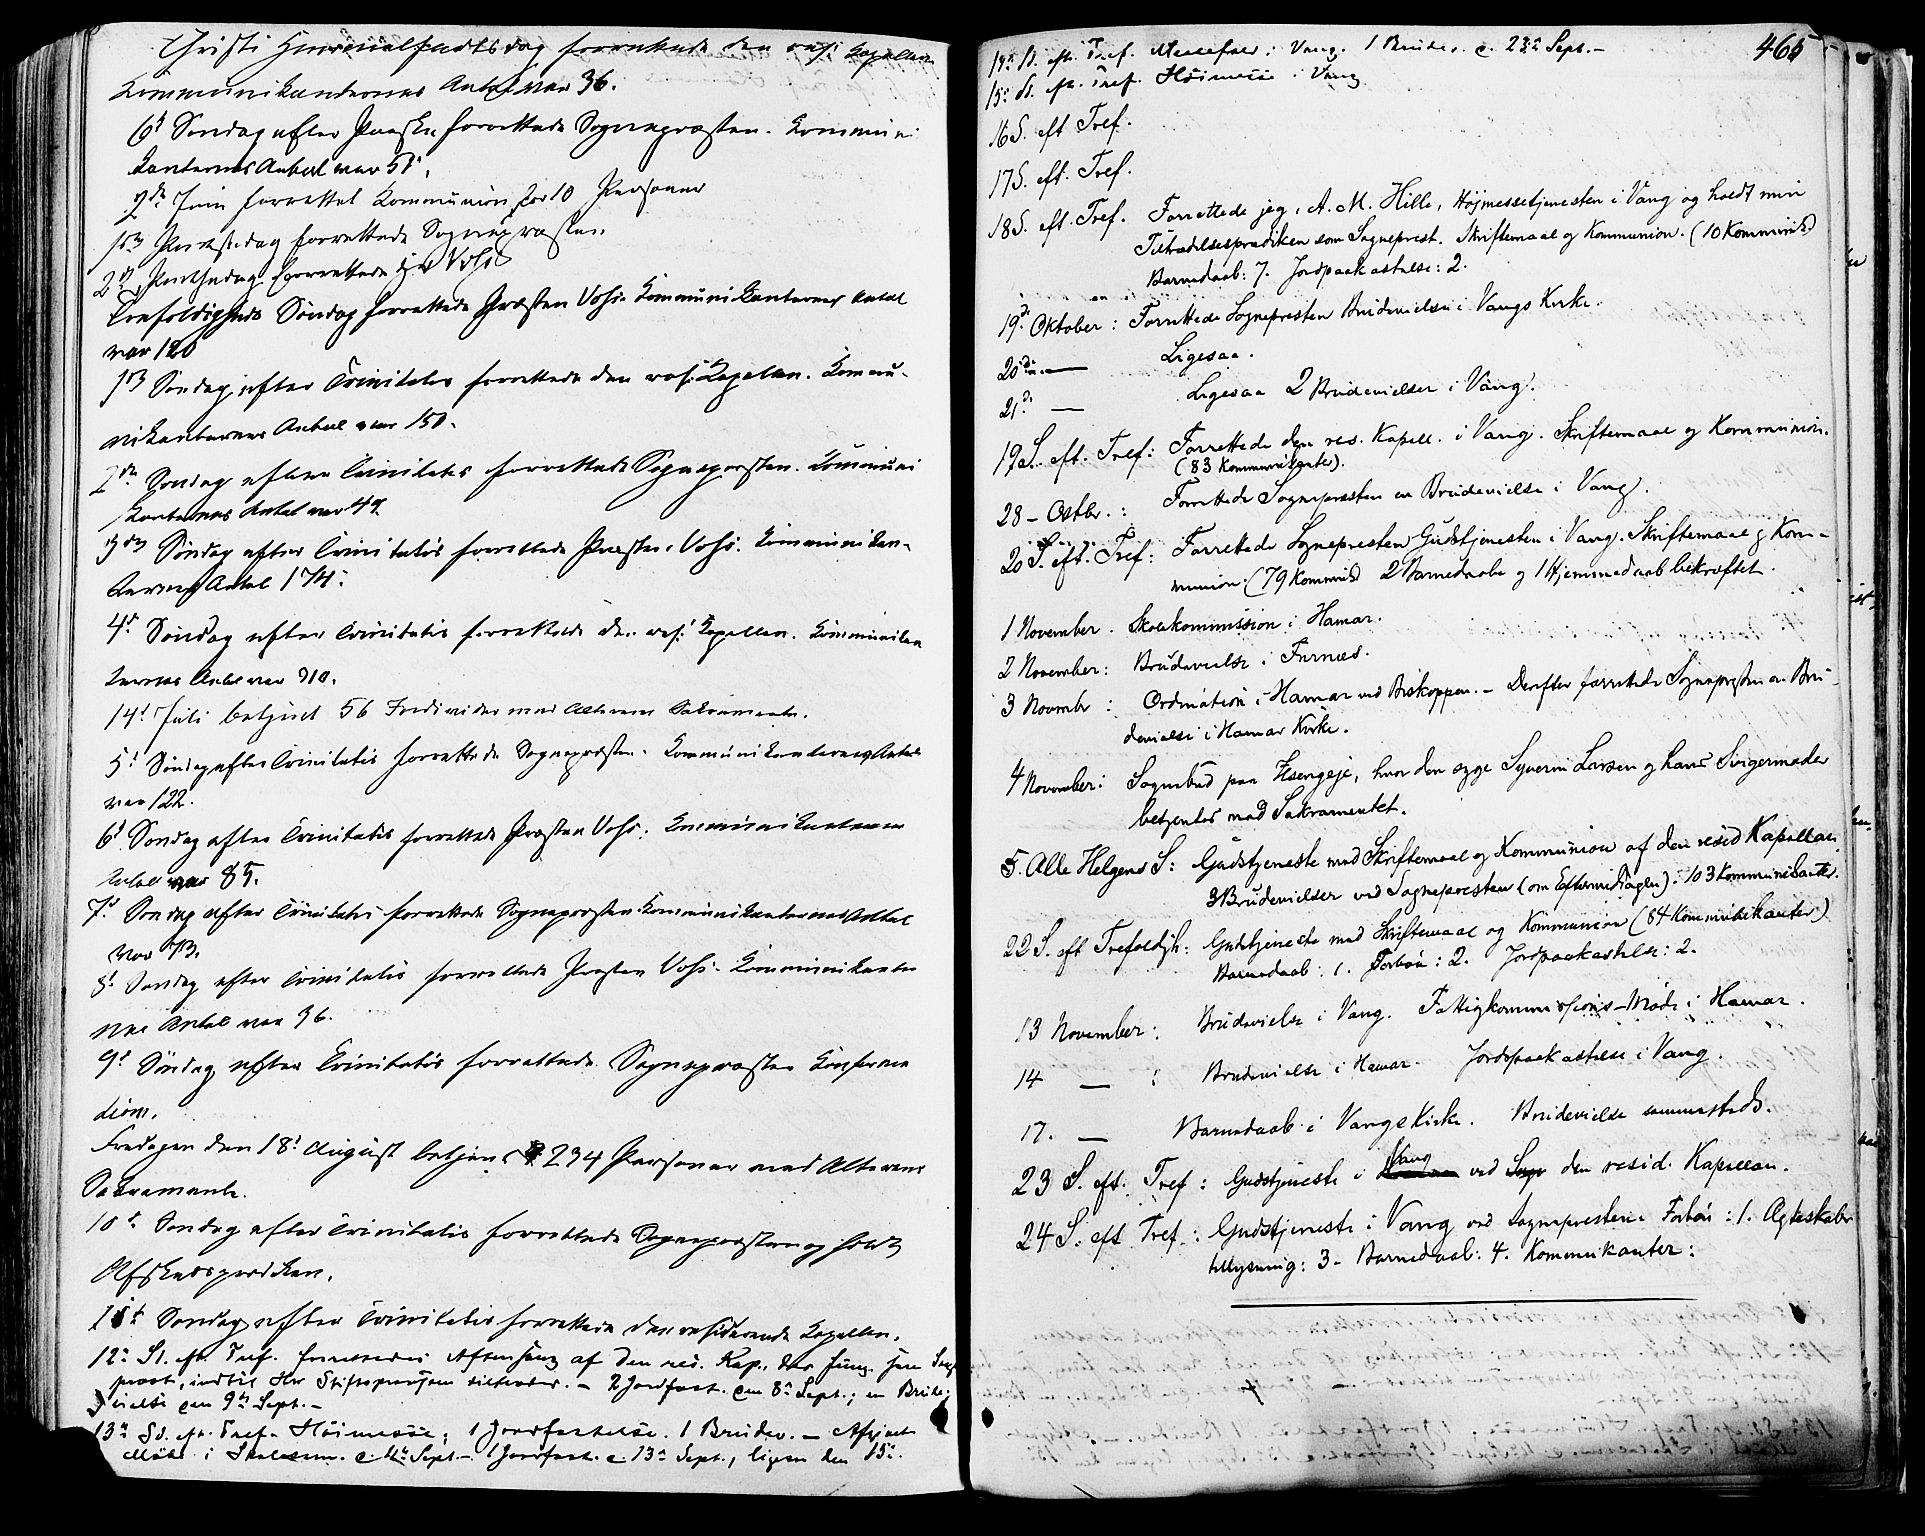 Christi Himmelfartsdag forrettede den resi. Kapellan
Kommunikanternes Antal var 36.
6t Søndag efter Paaske forrettede Sognepræsten. Kommuni
kanternes Antal var 51.
2den Juni forrettet Kommunion for 10 Personer
1ste Pintsedag forrettede Sognepræsten.
2d Pintsedag forrettede Voss
Trefoldigheds Søndag forrettede Præsten Voss. Kommunikanternes Antal
var 120
1ste Søndag efter Trinitatis forrettede den resi. Kapellan. Kommu-
nikanternes Antal var 150.
2den Søndag efter Trinitatis forrettede Sognepræsten. Kommuni
kanternes Antal var 49
3die Søndag efter Trinitatis forrettede Præsten Voss. Kommunikan-
ternes Antal 174.
4d Søndag efter Trinitatis forrettede den resi. Kapellan. Kommunikan
ternes Antal var 310.
14d Juli betjent 56 Individer med Alterens Sakramente.
5t Søndag efter Trinitatis forrettede Sognepræsten. Kommunikanternes Antal
var 122.
6t Søndag efter Trinitatis forrettede Præsten Voss. Kommunikanternes
Antal var 85.
7d Søndag efter Trinitatis forrettede Sognepræsten Kommunikanternes Antal
var 73.
8d Søndag efter Trinitatis forrettede Præsten Voss. Kommunikanter
nes Antal var 36.
9d Søndag efter Trinitatis forrettede Sognepræsten Konferma
tion.
Fredagen den 18d August betjent 234 Personer med Alterens
Sakramente.
10d Søndag efter Trinitatis forrettede Sognepræsten og holdt
Afskedsprediken.
11te Søndag efter Trinitatis forrettede den residerende Kapellan.
12te S. eft. Tref. forrettedes Aftensang af den res. Kap., der fung. som Sogne
prest, indtil Hr Stiftsprovsten tiltræder. — 2 Jordfæst. den 8de Sept.; en Brude-
vielse den 9de Sept. —
13de Sd. eft. Tref. Høimesse; 1 Jordfæstelse. 1 Brudev. —
Møde i Skolekom. d. 11te Sept. — 1 Jordfæst. d. 13de Sept., ligesaa den 15de.
465
14de S. eft. Tref. Messefald i Vang. 1 Brudev. d. 23de Sept. —
15de S. eft. Tref. Höimesse i Vang
16 S. eft Tref.
17 S. eft. Tref.
18 S. eft. Tref. Forrettede jeg, A. M. Hille, Højmessetjenesten i Vang og holdt min
Tiltrædelsesprædiken som Sogneprest. Skriftemaal og Kommunion. (10 Kommunik.)
Barnedaab: 7. Jordpaakastelse: 2.
19d Oktober: Forrettede Sognepresten en Brudevielse i Vangs Kirke.
20de — Ligesaa.
21d — Ligesaa 2 Brudevielser i Vang.
19 S. eft. Tref: Forrettede den res. Kapell. i Vang. Skriftemaal og Kommunion.
(83 Kommunikanter).
28 – Octbr.: Forrettede Sognepræsten en Brudevielse i Vang.
20 S. eft. Tref: Forrettede Sognepresten Gudstjenesten i Vang. Skriftemaal og Kom-
munion. (79 Kommunik) 2 Barnedaabe og 1 Hjemmedaab bekræftet.
1 November. Skolekommission i Hamar.
2 November: Brudevielse i Furnæs.
3 Novembr: Ordination i Hamar ved Biskoppen. — Derefter forrettede Sognepresten en Bru-
devielse i Hamar Kirke.
4 November: Sognebud paa Hsengeje, hvor den syge Syverin Larsen og hans Svigermoder
betjentes med Sakramentet.
5. Alle Helgens S: Gudstjeneste med Skriftemaal og Kommunion af den resid Kapellan
3 Brudevielser ved Sognepresten (om Eftermiddagen). 103 Kommunikanter.
22 S. eft Trefoldigh: Gudstjeneste med Skriftemaal og Kommunion (84 Kommunikanter)
Barnedaab: 1. Forbøn: 2. Jordpaakastelse: 2.
13 November: Brudevielse i Vang. Fattigkommissions-Møde i Hamar.
14 — : Brudevielse i Hamar. Jordspaakastelse i Vang.
17. — Barnedaab i Vangs Kirke. Brudevielse sammesteds.
23 S. eft. Tref: Gudstjeneste i Vang ved den resid. Kapellan.
24 S. eft Tref.: Gudstjeneste i Vang ved Sognepresten. Forbøn: 1. Ægteskabs
tillysning: 3. Barnedaab: 4. Kommunikanter: